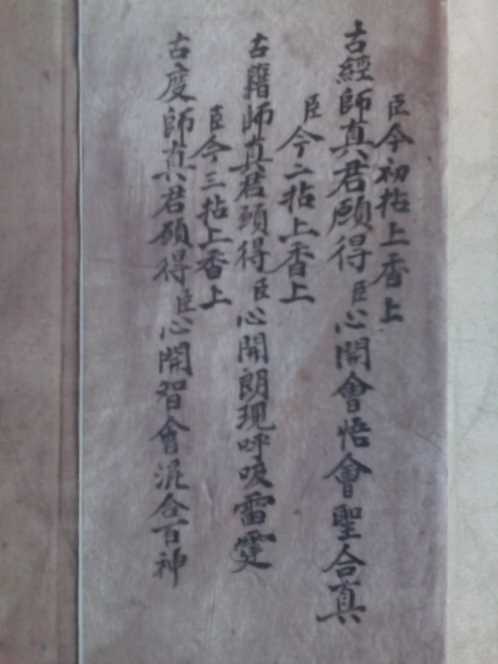 臣今初拈上香上
古經師真君願得臣心開會悟會聖合真
臣今二拈上香上
古籍師真君願得臣心開朗現呼吸雷霆
臣今三拈上香上
古度師真君願得臣心開智會混合百神